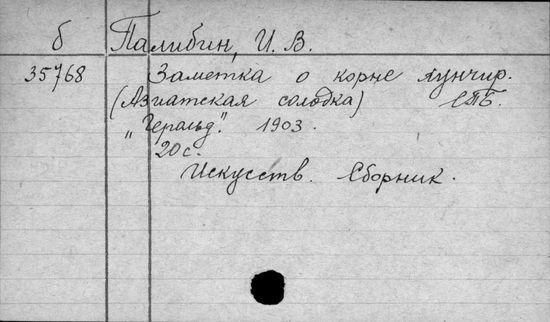 б Палибин, И. В.
35768 Заметка о корне лунчир.
(Азиатская солодка) СПБ.
„Герольд". 1903.
20 с.
Искусств. Сборник.